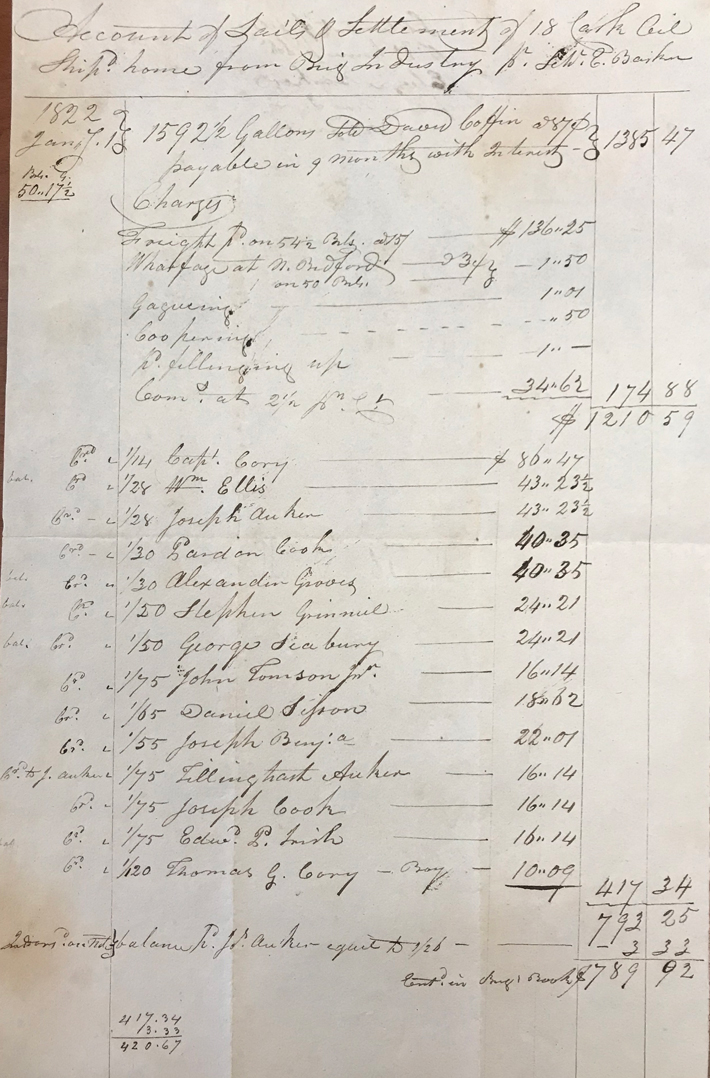 Account of Sails & Settlement of 18 Cask Oil
Ship.d home from Brig Industry pr. Sch.r E. Barker
1822
Jany. 1 } 1592 1/2 Gallons Sold David Coffin a 87 ¢ } 1385 47
payable in 9 months with Interest -
Bls. G.
50..17 1/2
Charges
Freight pd. on 54 1/2 Bls. a 15/ $ 136..25
Wharfage at N. Bedford a 3 ¢ 1..50
on 50 Bls.
Gagueing 1..01
Coopering - ..50
pd. fillinging up 1..-
Com.s at 2 1/2 pr. Ct 34..62 174 88
$ 1210 59
Crd " 1/14 Capt. Cory $ 86..47
bal. Crd " 1/28 Wm. Ellis 43..23 1/2
Crd. - " 1/28 Joseph Auker 43..23 1/2
Crd - " 1/30 Pardon Cook 40..35
bal. Cr. " 1/30 Alexander Groves 40..35
bal. Cr. " 1/50 Stephen Grinniel 24..21
bal. Cr. " 1/50 George Seabury 24..21
Crd. " 1/75 John Tomson Jnr. 16..14
Cr. " 1/65 Daniel Sisson 18..62
Cr. " 1/55 Joseph Benj.a 22..01
Crd. to J. Auker " 1/75 Tillinghast Auker 16..14
Cr. " 1/75 Joseph Cook 16..14
bal Crd. " 1/75 Edwd. P. Irish 16..14
Crd. " 1/120 Thomas G. Cory - Boy - 10..09 417 34
793 25
balance pd. Js. Auker equil to 1/26 - - 3 33
Entd. in Brig's Book $ 789 92
417.34
3.33
420.67